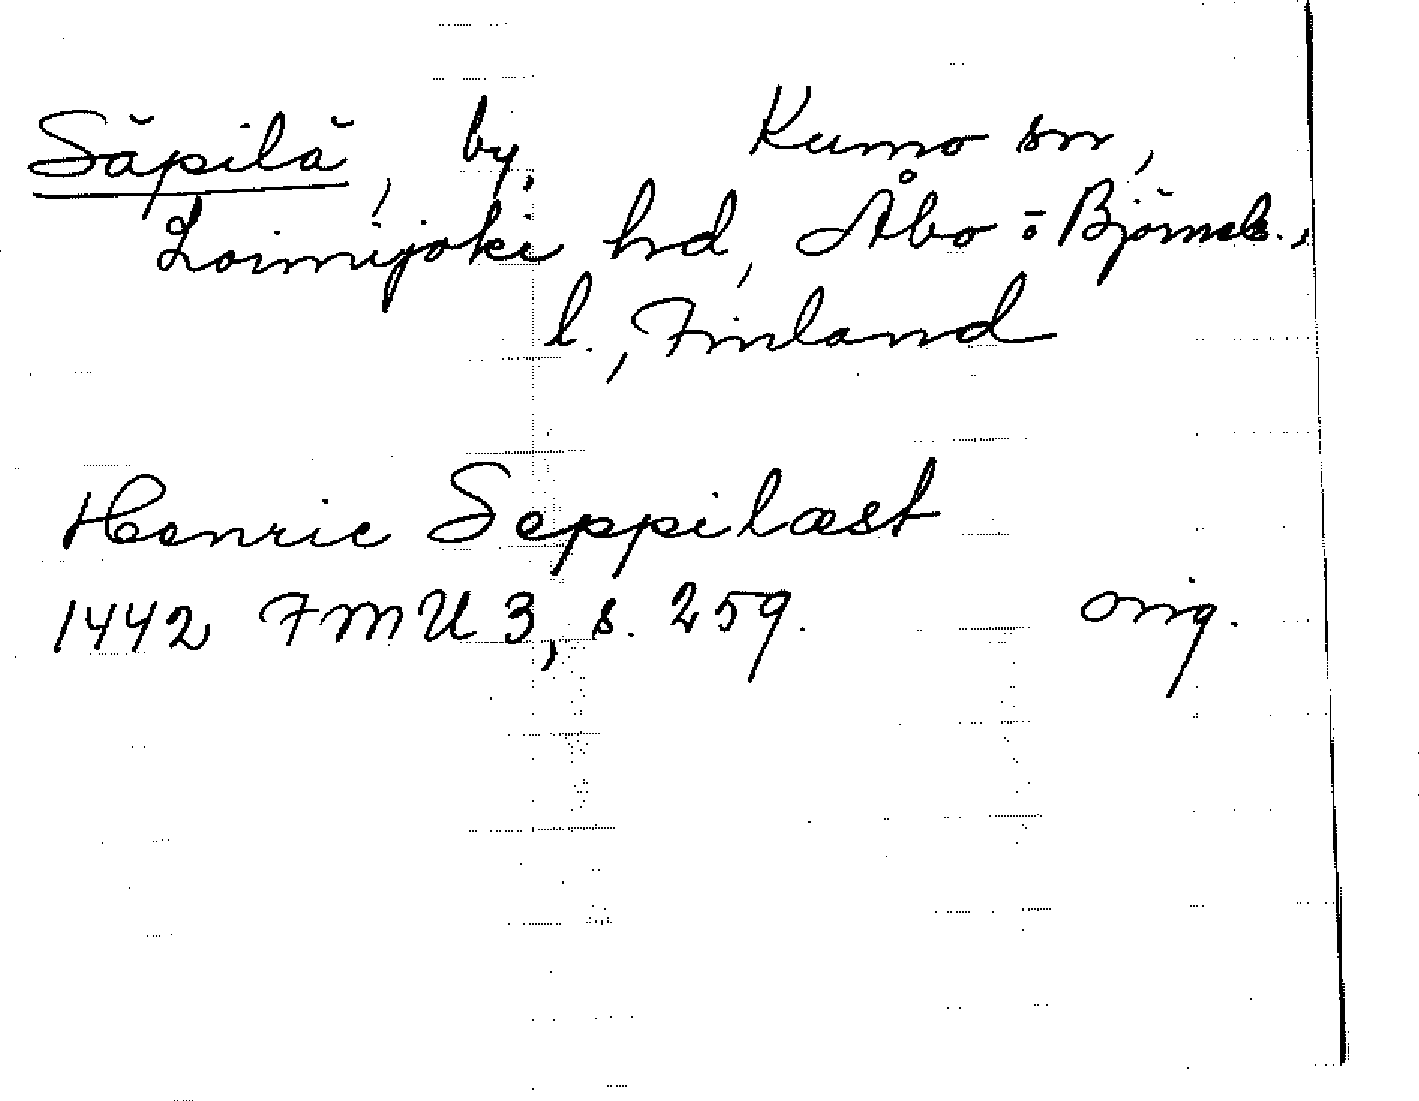 Säpilä, by, Kumo sn,
Loimijoki hd, Åbo o Björneb.,
l., Finland
Henric Seppilæst
1442 FMU 3, s. 259. orig.